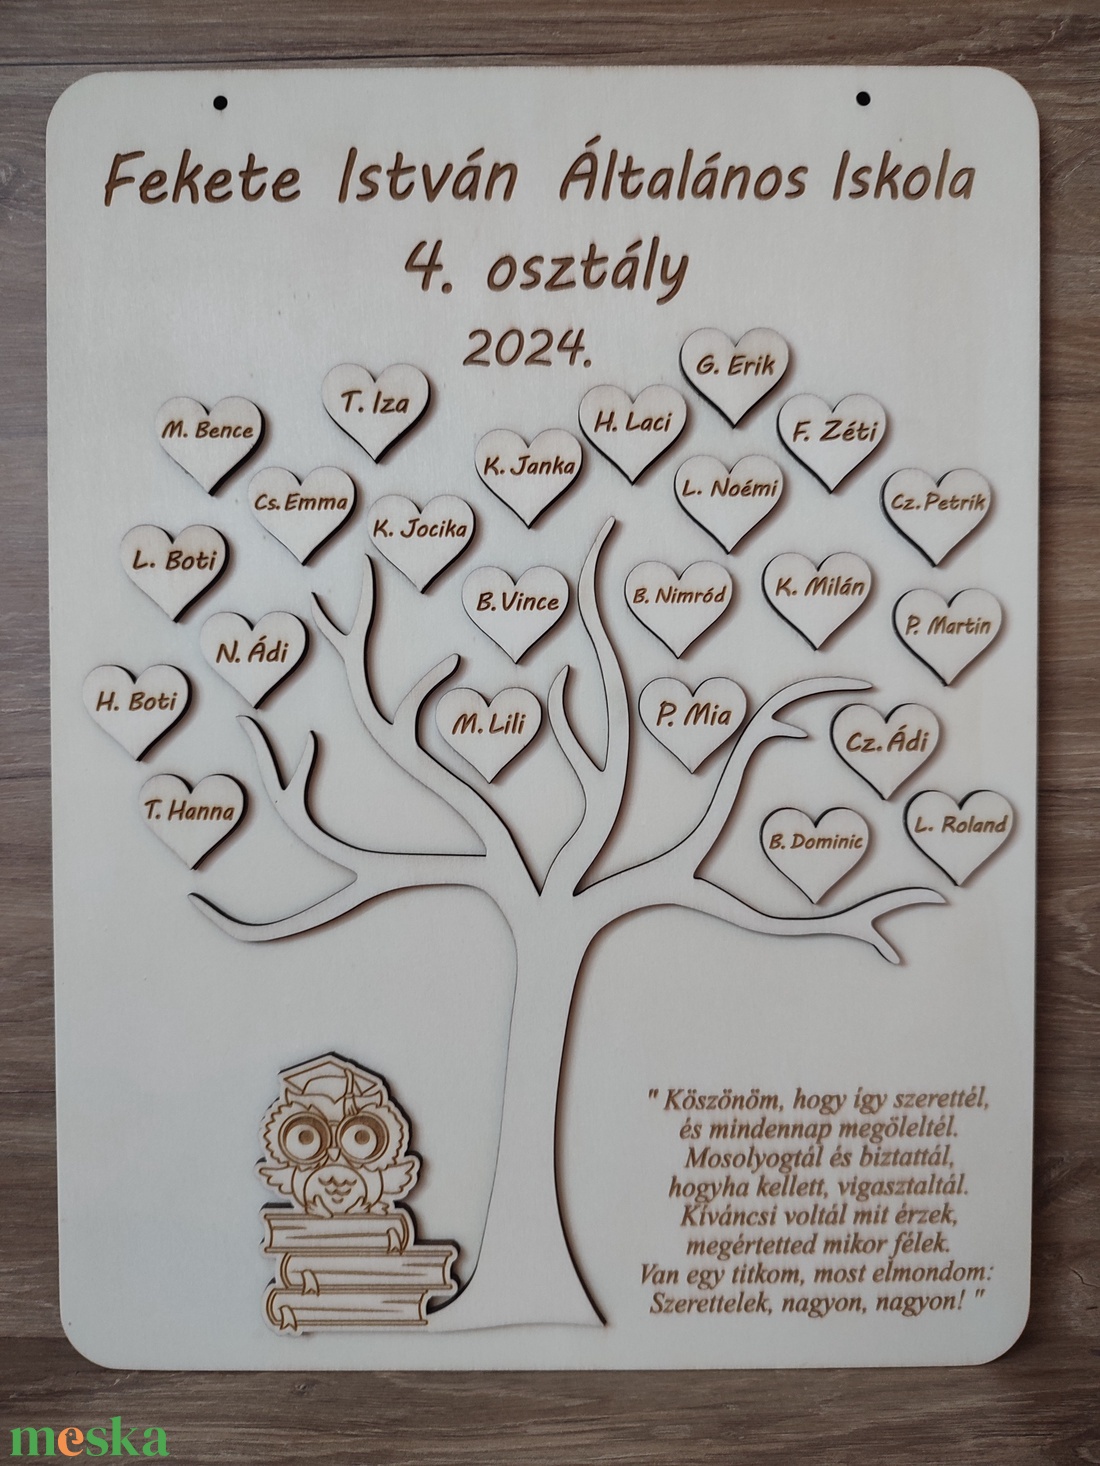 Fekete István Általános Iskola
4. osztály
2024.
G. Erik
T. Iza
M. Bence
H. Laci
F. Zéti
K. Janka
L. Noémi
Cs. Emma
Cz. Petrik
K. Jocika
L. Boti
B. Vince
B. Nimród
K. Milán
P. Martin
N. Ádi
H. Boti
M. Lili
P. Mia
Cz. Ádi
T. Hanna
B. Dominic
L. Roland
" Köszönöm, hogy így szerettél,
és mindennap megöleltél.
Mosolyogtál és biztattál,
hogyha kellett, vigasztaltál.
Kíváncsi voltál mit érzek,
megértetted mikor félek.
Van egy titkom, most elmondom:
Szerettelek, nagyon, nagyon! "
meska